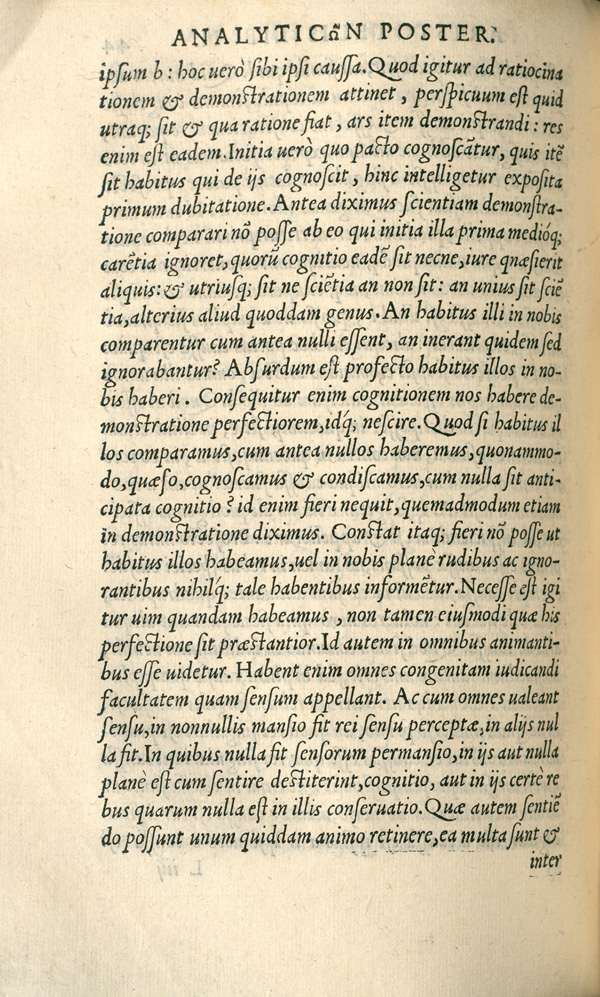 ANALYTICωN POSTER.
ipsum b: hoc uerò sibi ipsi caussa. Quod igitur ad ratiocina
tionem & demonstrationem attinet, perspicuum est quid
utraq; sit & qua ratione fiat, ars item demonstrandi: res
enim est eadem. Initia uerò quo pacto cognoscãtur, quis itẽ
sit habitus qui de ijs cognoscit, hinc intelligetur exposita
primum dubitatione. Antea diximus scientiam demonstra-
tione comparari nõ posse ab eo qui initia illa prima medióq;
carẽtia ignoret, quorũ cognitio eadẽ sit necne, iure qnæsierit
aliquis: & utriusq; sit ne sciẽtia an non sit: an unius sit sciẽ
tia, alterius aliud quoddam genus. An habitus illi in nobis
comparentur cum antea nulli essent, an inerant quidem sed
ignorabantur? Absurdum est profecto habitus illos in no-
bis haberi. Consequitur enim cognitionem nos habere de-
monstratione perfectiorem, idq́; nescire. Quod si habitus il
los comparamus, cum antea nullos haberemus, quonammo-
do, quæso, cognoscamus & condiscamus, cum nulla sit anti-
cipata cognitio? id enim fieri nequit, quemadmodum etiam
in demonstratione diximus. Constat itaq; fieri nõ posse ut
habitus illos habeamus, uel in nobis planè rudibus ac igno-
rantibus nihilq́; tale habentibus informẽtur. Necesse est igi
tur uim quandam habeamus, non tamen eiusmodi quæ his
perfectione sit præstantior. Id autem in omnibus animanti-
bus esse uidetur. Habent enim omnes congenitam iudicandi
facultatem quam sensum appellant. Ac cum omnes ualeant
sensu, in nonnullis mansio fit rei sensu perceptæ, in alijs nul
la fit. In quibus nulla fit sensorum permansio, in ijs aut nulla
planè est cum sentire destiterint, cognitio, aut in ijs certè re
bus quarum nulla est in illis conseruatio. Quæ autem sentiẽ
do possunt unum quiddam animo retinere, ea multa sunt &
inter